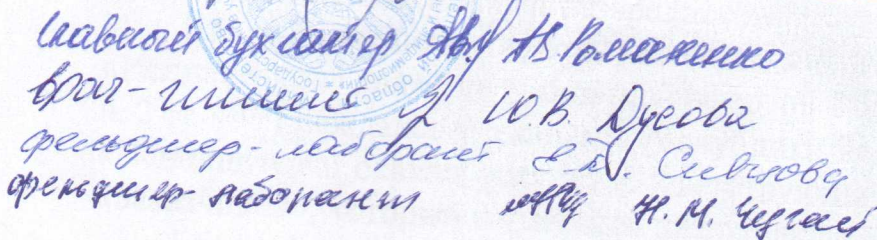 Главный бухгалтер А.В. Романенко
врач-гигиенист Ю.В. Дусова
фельдшер-лаборант Е.П. Сивцова
фельдшер-лаборант Н.М.